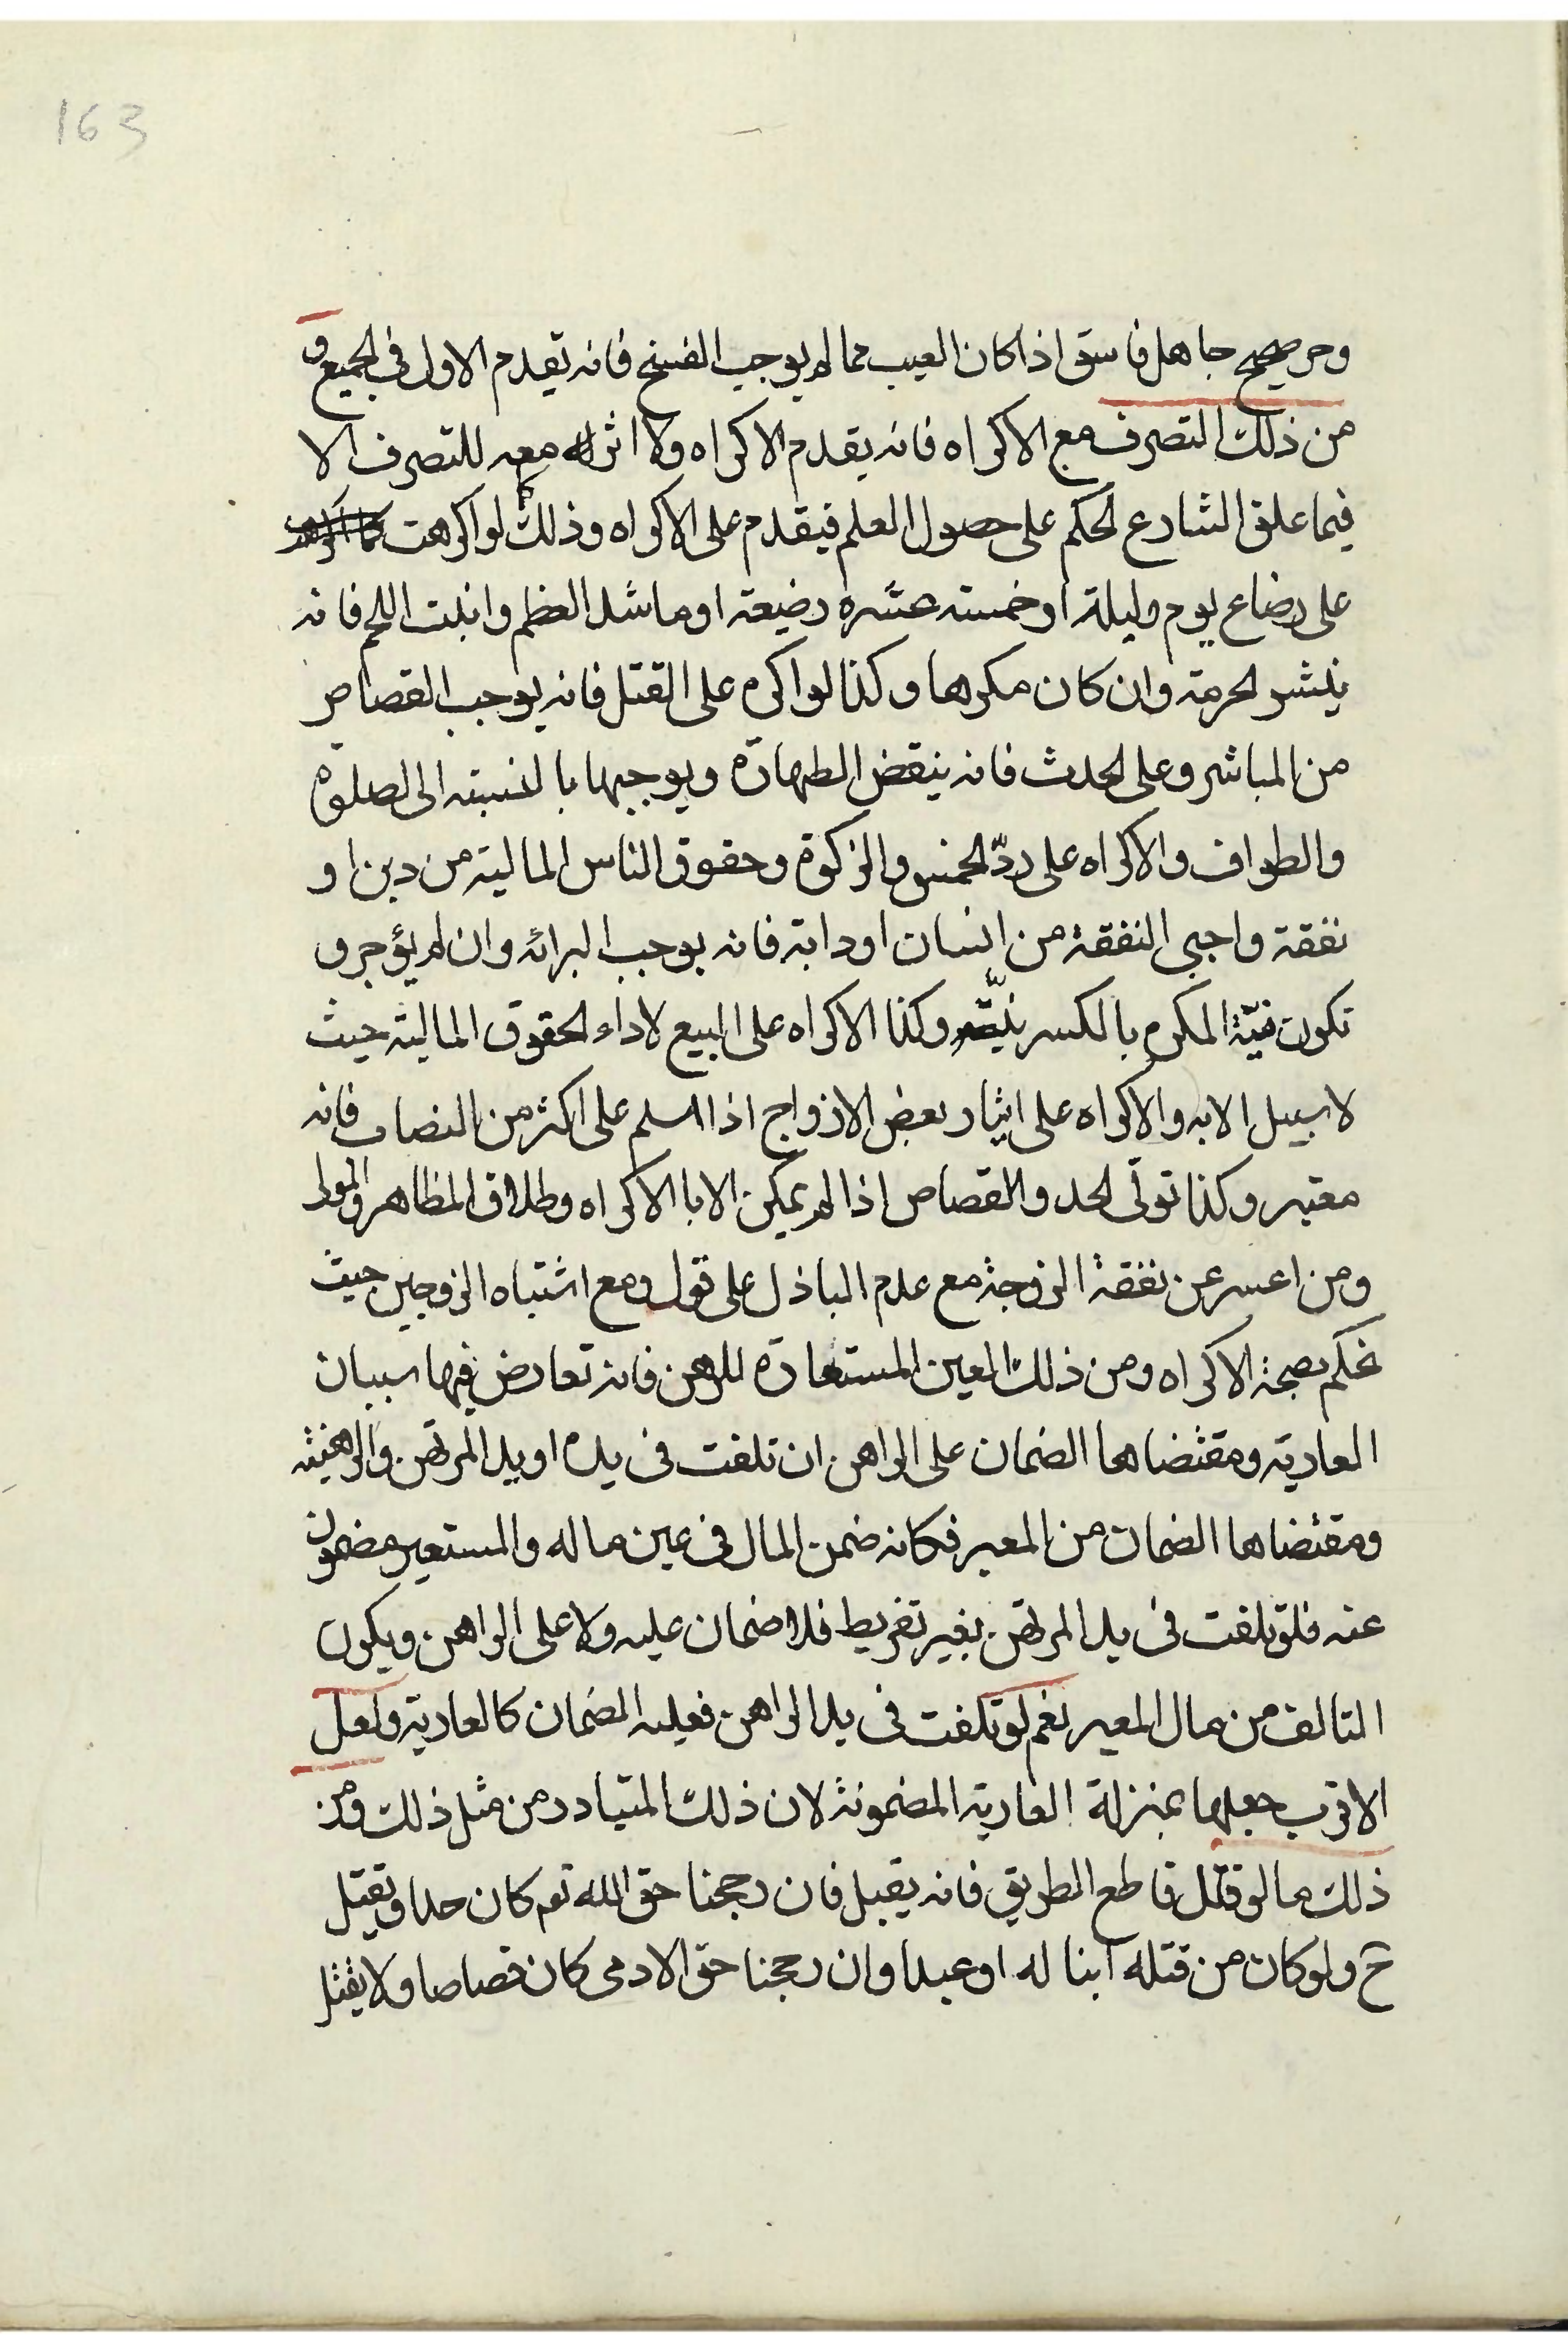 163
وحر صحيح جاهل فاسق اذا كان العيب مما لم يوجب الفسخ فانه تقدم الاول فى الجميع و
من ذلك التصرف مع الاكراه فانه يقدم الاكراه ولا اثر معه للتصرف الا
فيما علق الشارع الحكم على حصول العلم فيقدم على الاكراه وذلك كما لو اكرهت
على رضاع يوم وليلة او خمسة عشره رضيعة او ما شد العظم وانبت اللحم فانه
ينشر الحرمة وان كان مكرها وكذا لو اكره على القتل فانه يوجب القصاص
من المباشر وعلى الحدث فانه ينقض الطهارة ويوجبها بالنسبة الى الصلوة
والطواف والاكراه على ردّ الخمس والزكوة وحقوق الناس المالية من دين او
نفقة واجبى النفقة من انسان او دابة فانه يوجب البرائة وان لم يؤجر و
تكون نيّة المكره بالكسر نيّته وكذا الاكراه على البيع لاداء الحقوق المالية حيث
لا سبيل الا به والاكراه على ايثار بعض الازواج اذا اسلم على اكثر من النصاب فانه
معتبر وكذا تولّى الحد والقصاص اذا لم يمكن الا بالاكراه وطلاق المظاهر والمولى
ومن اعسر عن نفقة الزوجة مع عدم الباذل على قول ومع اشتباه الزوجين حيث
نحكم بصحة الاكراه ومن ذلك العين المستعارة للرهن فانه تعارض فيها سببان
العارية ومقتضاها الضمان على الراهن ان تلفت فى يده او يد المرتهن والرهنية
ومقتضاها الضمان من المعير فكانه ضمن المال فى عين ماله والمستعير مضمون
عنه فلو تلفت فى يد المرتهن بغير تفريط فلا ضمان عليه ولا على الراهن ويكون
التالف من مال المعير نعم لو تلفت فى يد الراهن فعليه الضمان كالعارية ولعل
الاقرب جعلها بمنزلة العارية المضمونة لان ذلك المتبادر من مثل ذلك ومن
ذلك ما لو قتل قاطع الطريق فانه يقبل فان رجحنا حق الله تعم كان حدا ويقتل
ح ولو كان من قتله ابنا له او عبدا وان رجحنا حق الادمى كان قصاصا ولا يقتل